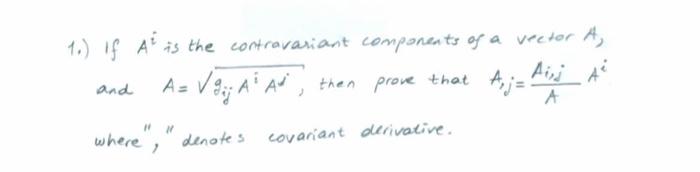 1.) If Aⁱ is the contravariant components of a vector A,
and A = √(gᵢⱼ Aⁱ Aʲ), then prove that A,ⱼ = (Aᵢ,ⱼ / A) Aⁱ
where "," denotes covariant derivative.